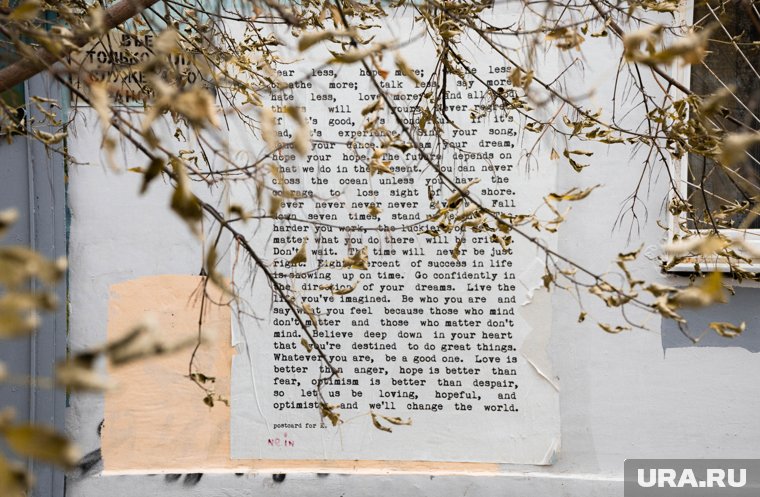 ВСЕ
less, hope more; less
more; talk less, say more
hate less, love more; and all good
will yours. Never regret.
good, it's If it's
bad, it's experience. Sing your song,
your dance, your dream,
hope your hope. The future depends on
what we do in the present. You can never
cross the ocean unless you have the
courage to lose sight of shore.
Never never never never give Fall
down seven times, stand
harder you work, the luckier you
matter what you do there will be critics
Don't wait. The time will never be just
right. Eighty percent of success in life
is showing up on time. Go confidently in
the direction of your dreams. Live the
life you've imagined. Be who you are and
say what you feel because those who mind
don't matter and those who matter don't
mind. Believe deep down in your heart
that you're destined to do great things.
Whatever you are, be a good one. Love is
better than anger, hope is better than
fear, optimism is better than despair,
so let us be loving, hopeful, and
optimistic and we'll change the world.
postcard for
URA.RU